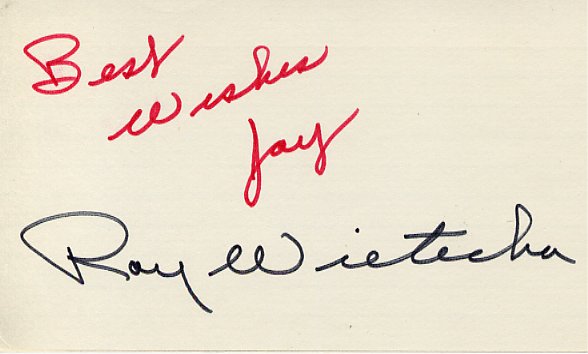 Best
Wishes
Jay
Ray Wietecha